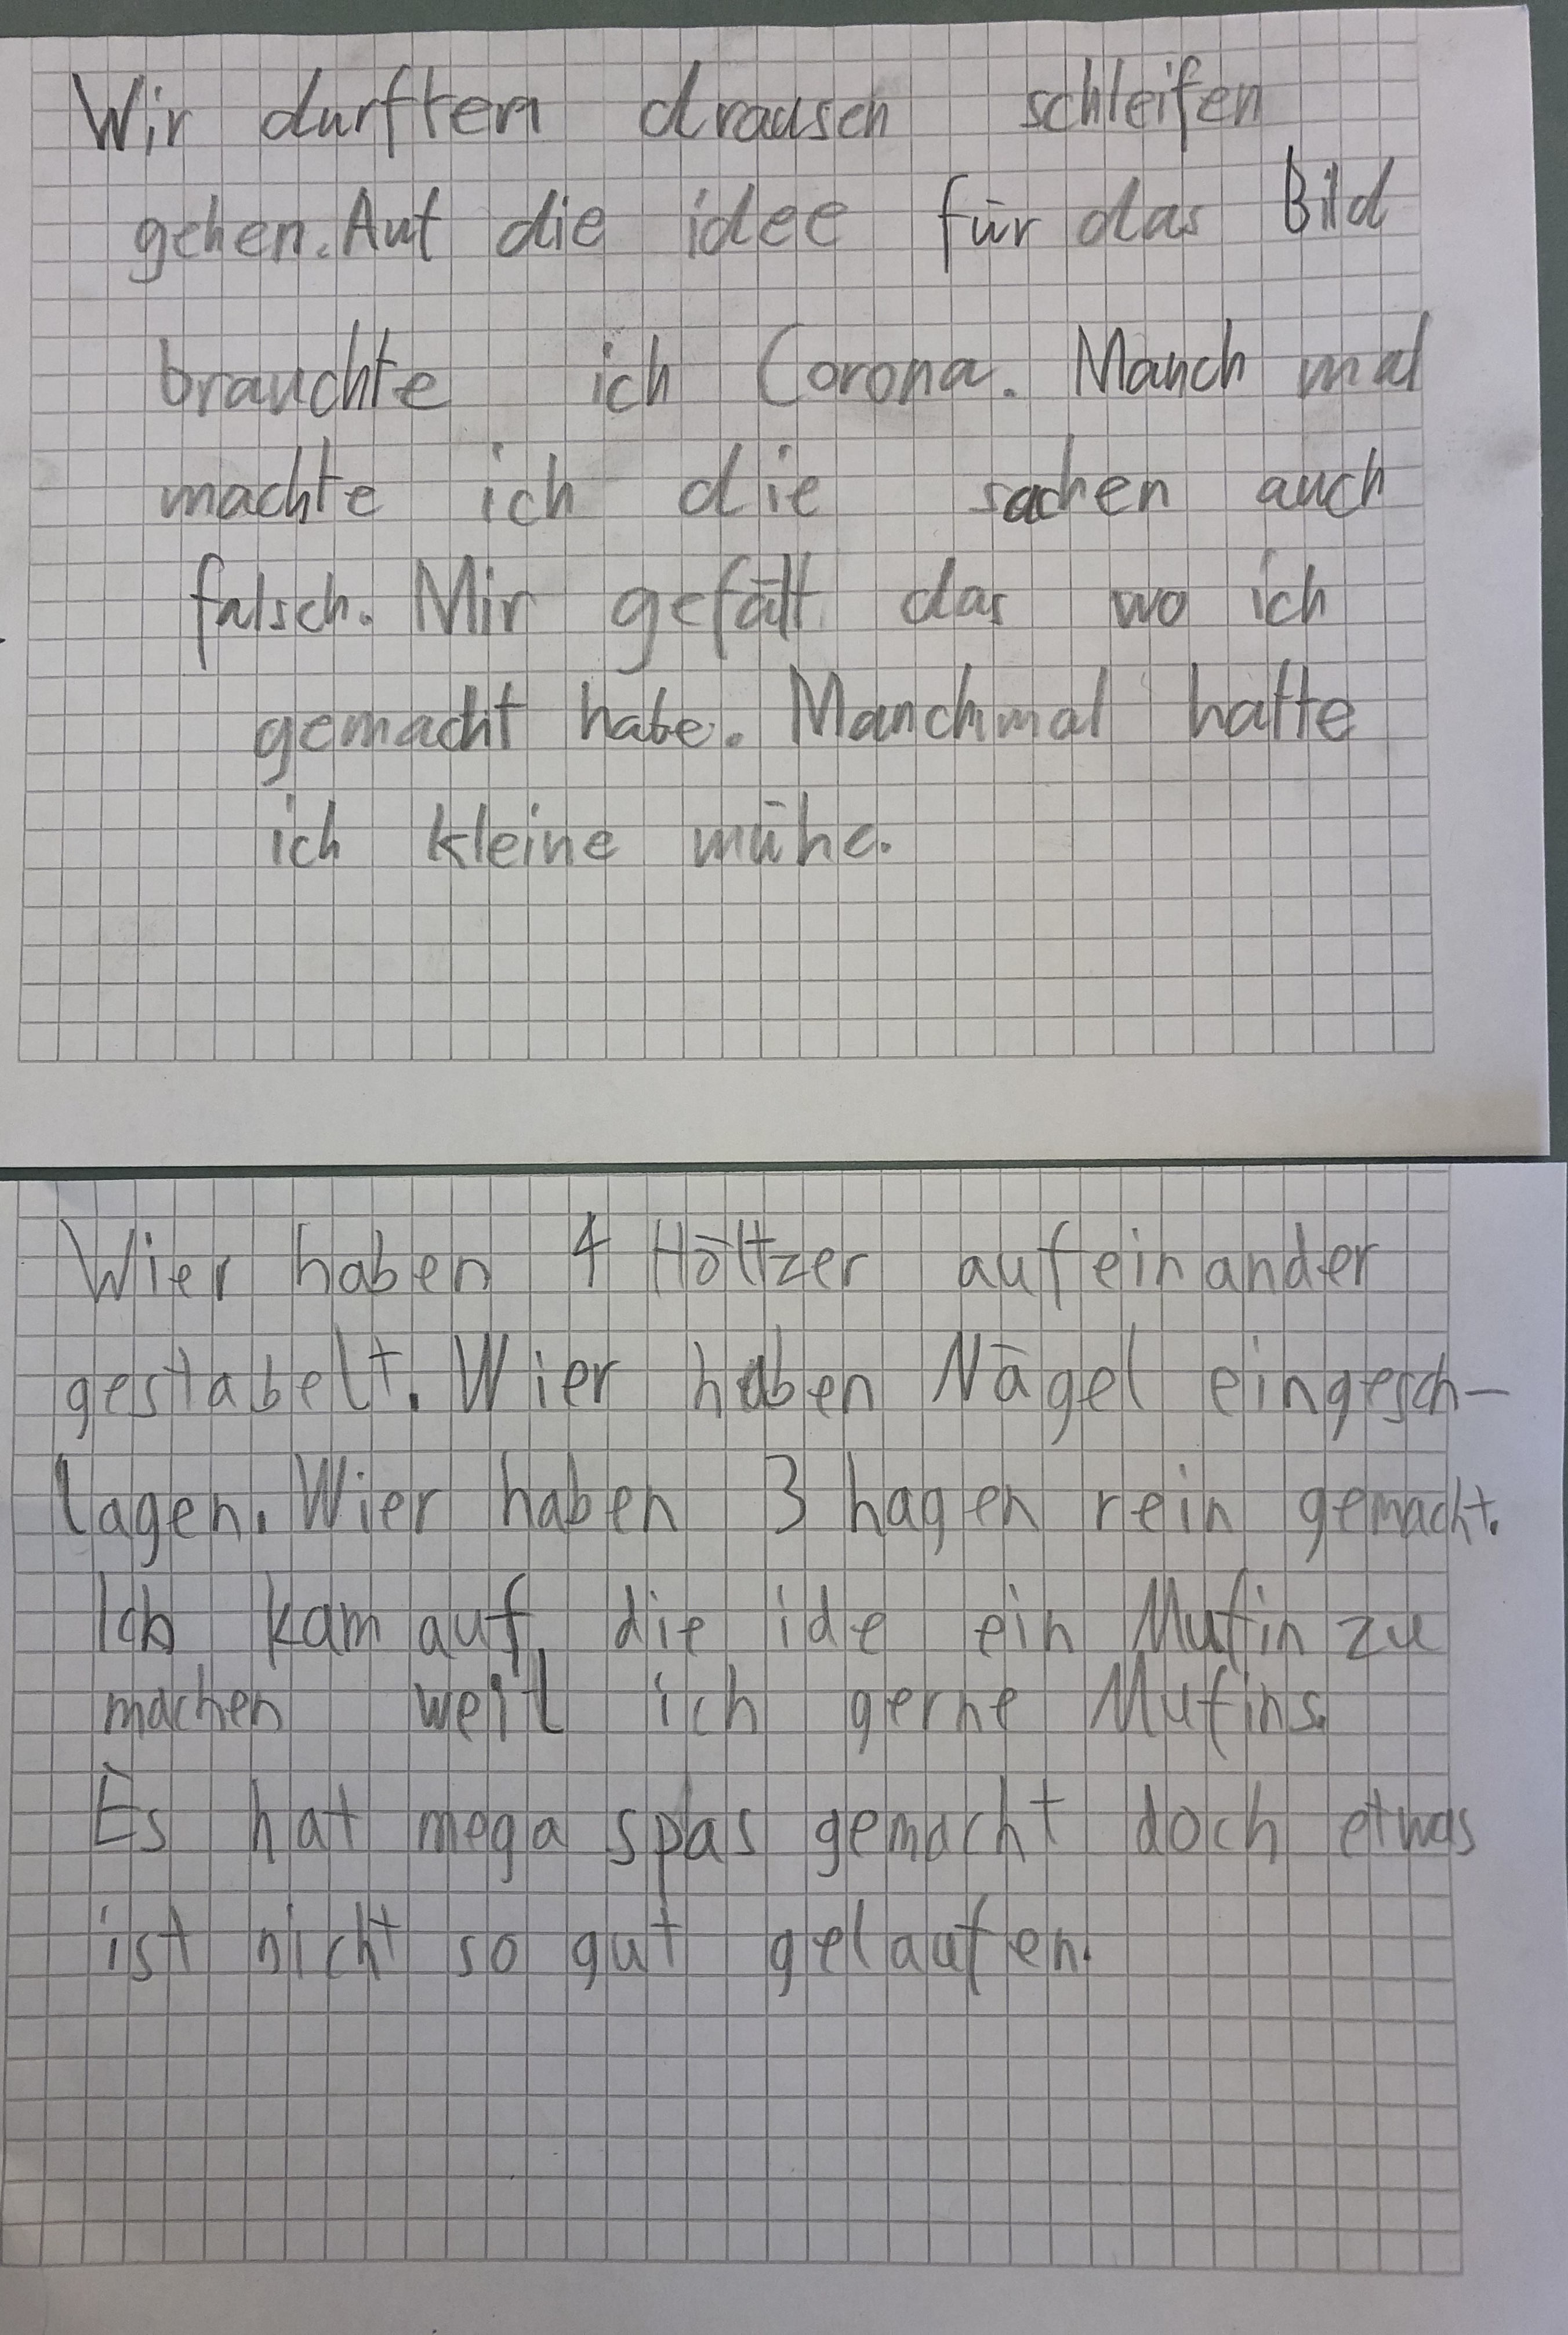 Wir durften drausen schleifen
gehen. Auf die idee für das Bild
brauchte ich Corona. Manch mal
machte ich die sachen auch
falsch. Mir gefält das wo ich
gemacht habe. Manchmal hatte
ich kleine mühe.
Wier haben 4 Höltzer aufeinander
gestabelt. Wier haben Nägel eingesch-
lagen. Wier haben 3 hagen rein gemacht.
Ich kam auf die ide ein Mufin zu
machen weil ich gerne Mufins.
Es hat mega spas gemacht doch etwas
ist nicht so gut gelaufen.